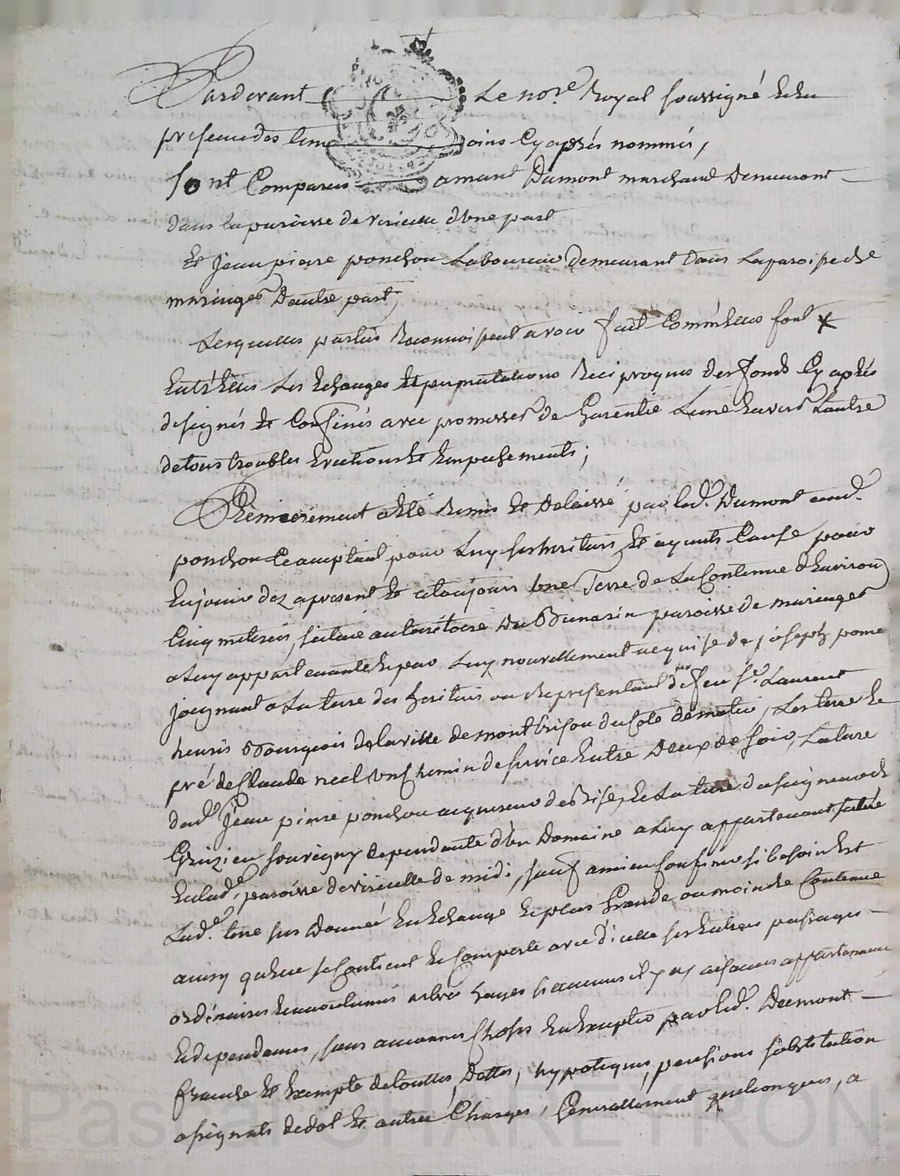 Pardevant Le no.re Royal soussigné & en
presence des temoins Cy apprés nommés,
sont Comparus amant Dumont marchand Demeurant
dans la paroisse de viricelle d'une part
Et Jean pierre ponchon Laboureur demeurant dans La paroisse de
maringes D'autre part,
Lesquelles parties Reconnoissent avoir fait Comm'elles font
Entr'Elles Les Echanges et permutations Reciproques des fonds Cy apprés
designés et Confinés avec promesses de Garentie L'une Envers L'autre
de tous troubles Evictions et Empechements;
Premierement a été Remis et Delaissé par led. Dumont aud.
ponchon Acceptant pour Luy ses heritiers et ayants Cause pour
En jouir dez a present et a toujours Une Terre de La Contenue d'Environ
Cinq meterés, située au territoire Du paroisse de maringes
a Luy appartenante Et par Luy nouvellement acquise de joseph
joignant a La terre des heritiers ou Representants de feu s.r Laurent
henris Bourgeois de la ville de montbrison du Coté de matin, Les terre &
pré de Claude neel Un Chemin de service Entre Deux de soir, La terre
dud. Jean pierre ponchon acquereur de Bise, Et La terre du seigneur de
souvigny dependante d'un Domaine a Luy appartenant située
En lad. paroisse de viricelle de midi, sauf Confins si besoin Est
Lad. terre sus Donnée En Echange Et plus Grande ou moindre Contenue
ainsy qu'elle se Contient Et Comporte avec d'icelle ses Entrées passages
ordinaires arbres hayes si aucunes il y a, aisances appartenances
Et dependances, sans aucunes Choses En Excepter par led. Dumont
franche et Exempte de touttes Dettes, hypoteques, pensions substitution
de dot et autres Charges, Generallement quelconques, a
Pascal CHAREYRON